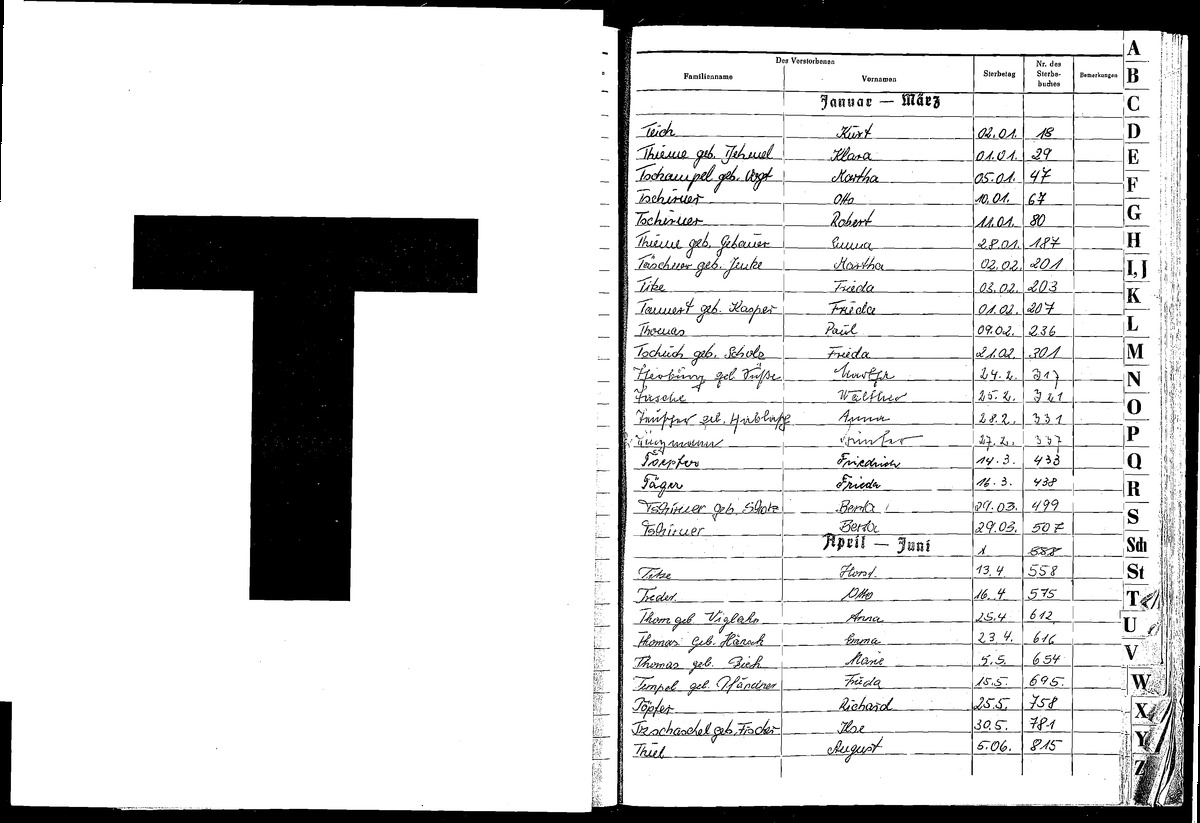 T
Des Verstorbenen
Familienname Vornamen Sterbetag Nr. des Sterbe-buches Bemerkungen
Januar — März
Teich Kurt 02.01. 18
Thieme geb. Klara 01.01. 29
Tschampel geb. Vogt Martha 05.01. 47
Tschirner Otto 10.01. 67
Tschirner Robert 11.01. 80
Thieme geb. Gebauer Emma 28.01. 187
Täschner geb. Jenke Martha 02.02. 201
Tike Frieda 03.02. 203
Tannert geb. Kasper Frieda 01.02. 207
Thomas Paul 09.02. 236
Tschich geb. Scholz Frieda 21.02. 301
geb. 24.2. 317
Walther 25.2. 321
geb. Anna 28.2. 331
Günther 27.2. 337
Töepfer Friedrich 14.3. 433
Täger Frieda 16.3. 438
Tschirner geb. Scholz Berta 29.03. 499
Tschirner Berta 29.03. 507
April — Juni
Titze Horst. 13.4. 558
Treder Otto 16.4. 575
Thom geb. Anna 25.4 612
Thomas geb. Emma 23.4. 616
Thomas geb. Marie 5.5. 654
Tempel geb. Frieda 15.5. 695.
Töpfer Richard 25.5. 758
Trzschaschel geb. Fischer Ilse 30.5. 781
Thiel August 5.06. 815
A
B
C
D
E
F
G
H
I, J
K
L
M
N
O
P
Q
R
S
Sch
St
T
U
V
W
X
Y
Z